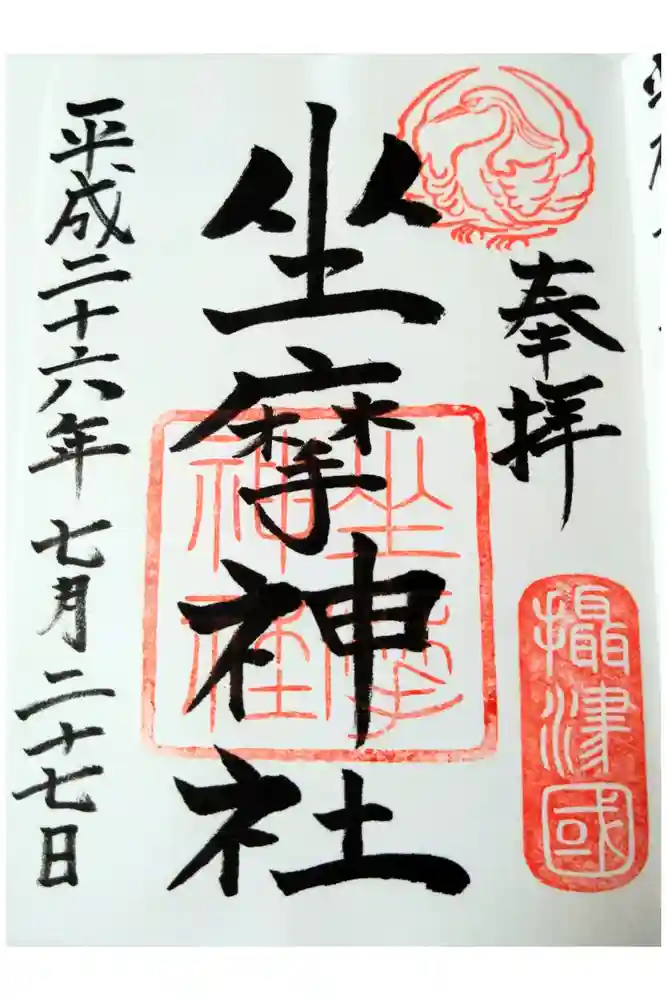 奉拝
攝津國
坐摩神社
坐摩神社
平成二十六年七月二十七日